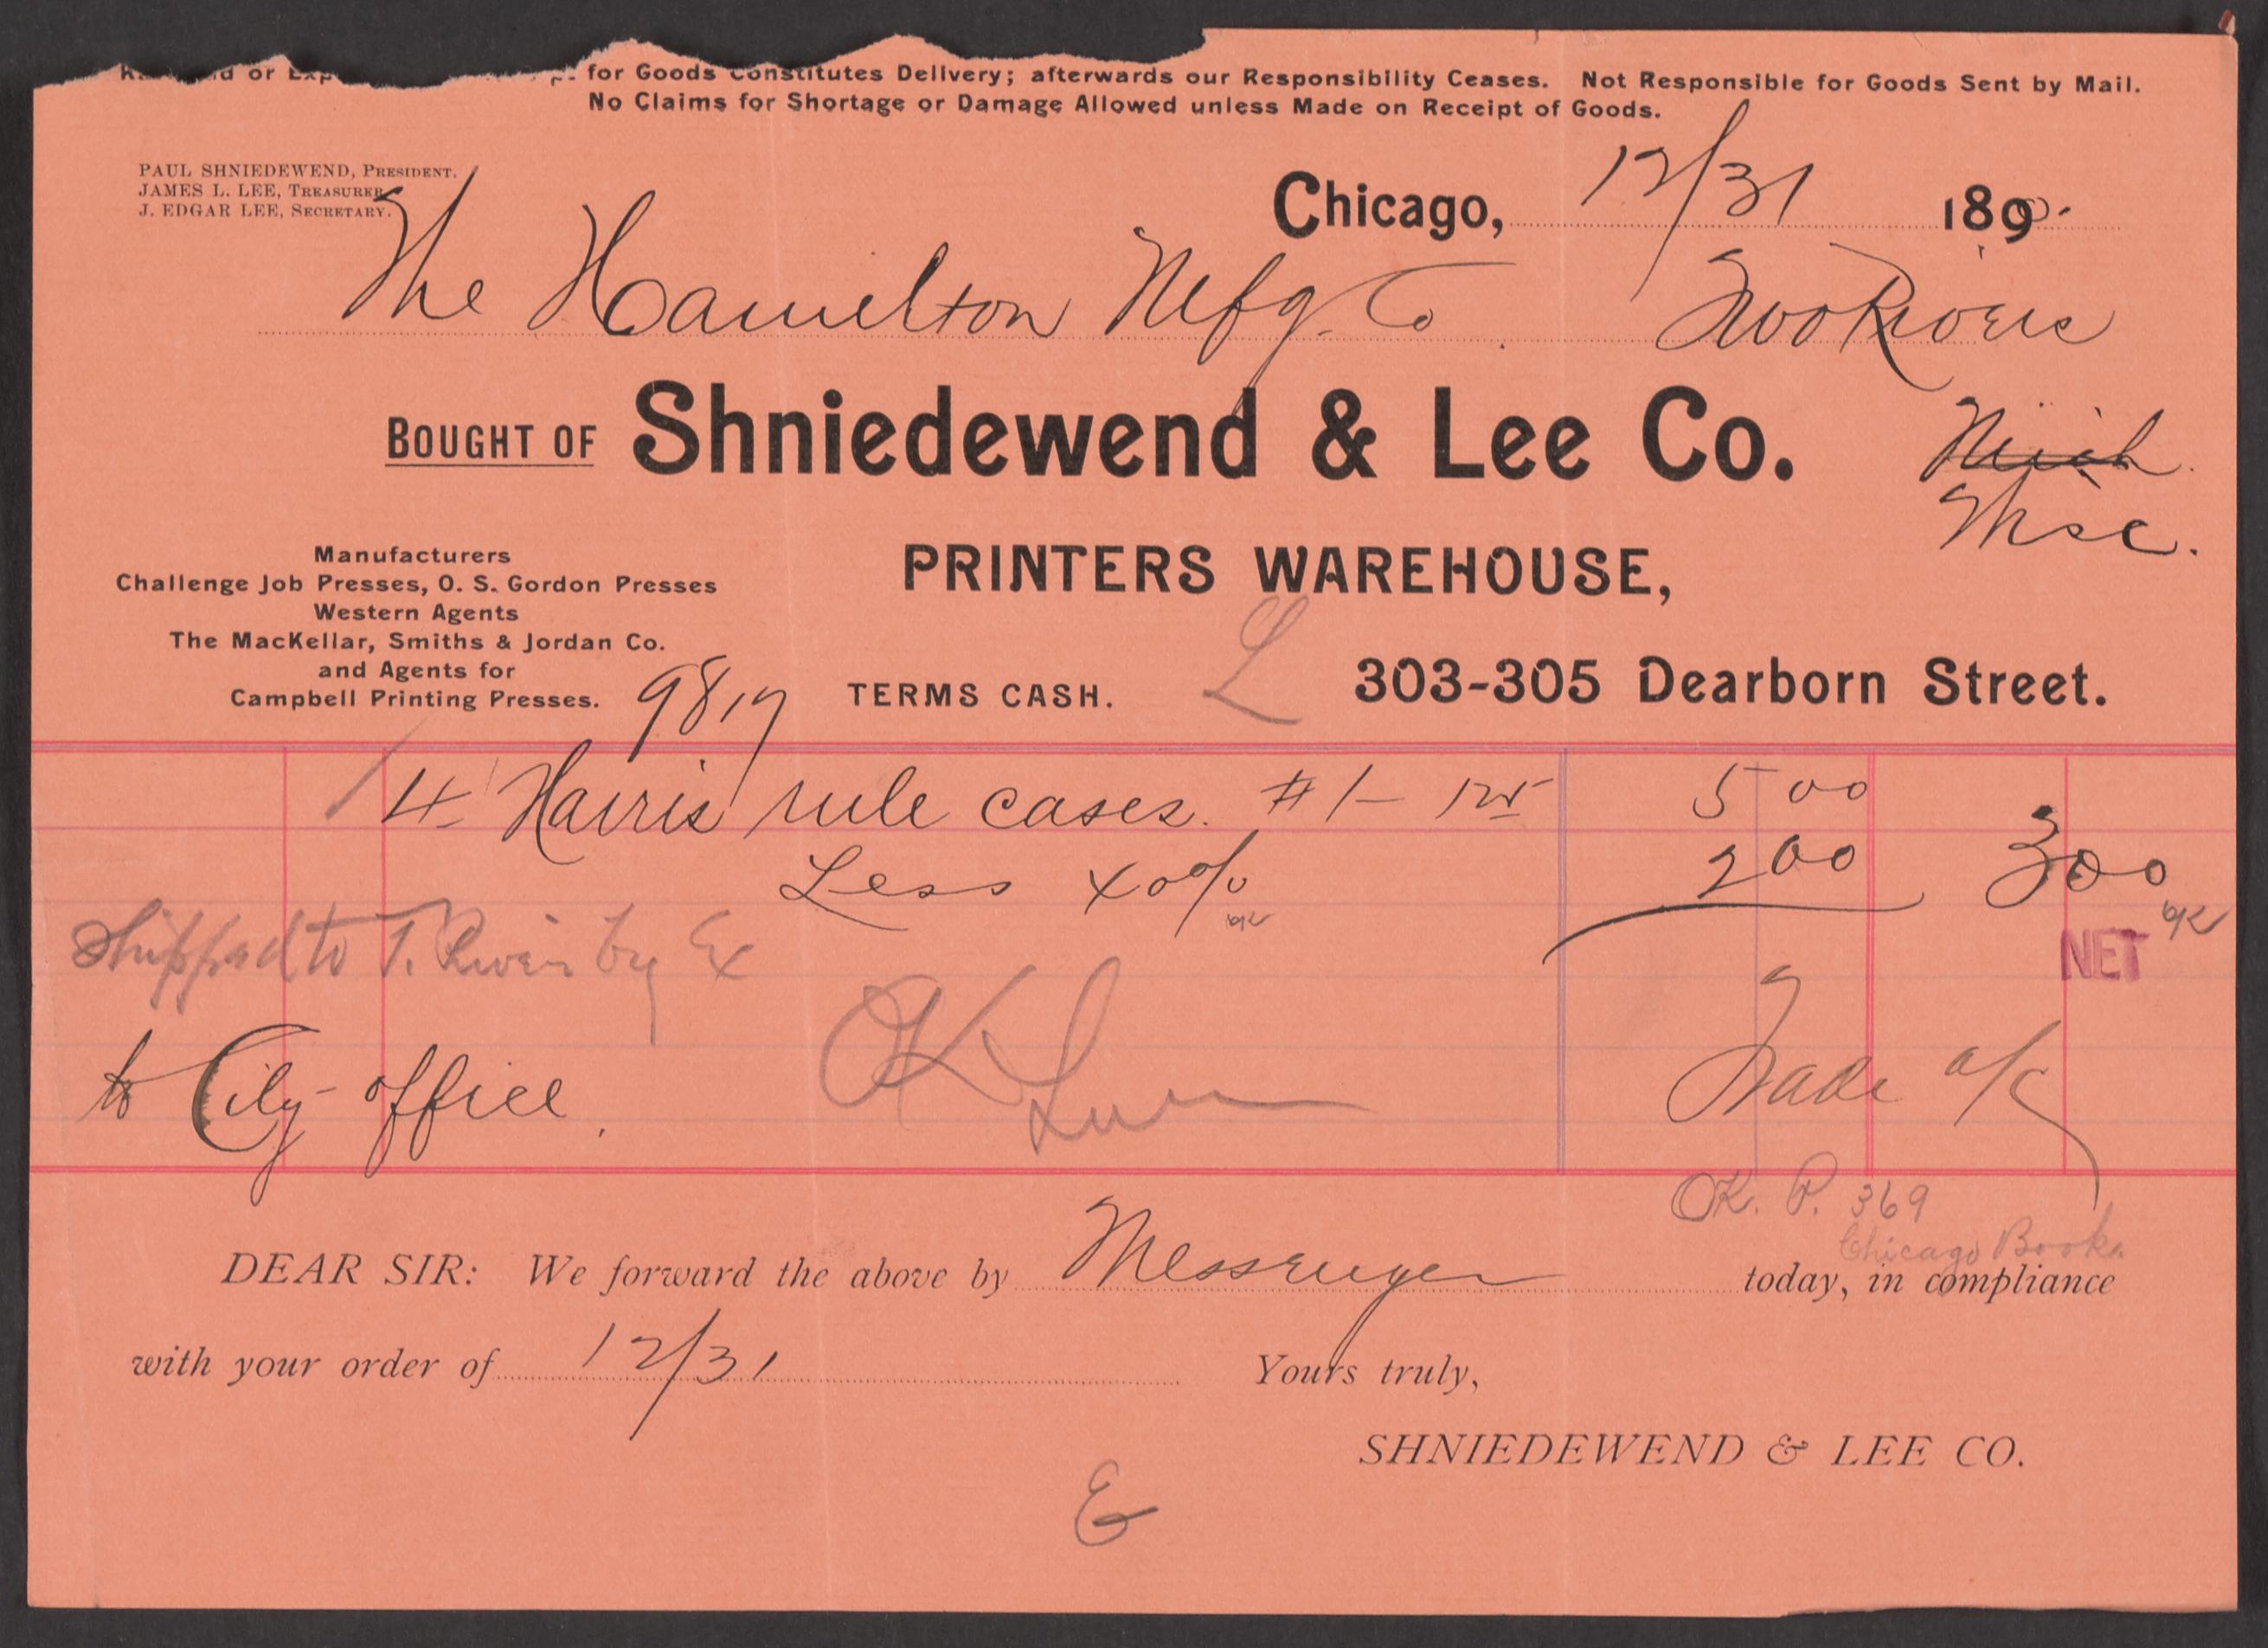 for Goods Constitutes Delivery; afterwards our Responsibility Ceases. Not Responsible for Goods Sent by Mail.
No Claims for Shortage or Damage Allowed unless Made on Receipt of Goods.
PAUL SHNIEDEWEND, PRESIDENT.
JAMES L. LEE, TREASURER.
J. EDGAR LEE, SECRETARY.
Chicago, 12/31 1890.
The Hamilton Mfg. Co Two Rivers
Mich.
Wisc.
BOUGHT OF Shniedewend & Lee Co.
PRINTERS WAREHOUSE,
Manufacturers
Challenge Job Presses, O. S. Gordon Presses
Western Agents
The MacKellar, Smiths & Jordan Co.
and Agents for
Campbell Printing Presses.
9819 TERMS CASH. L 303-305 Dearborn Street.
4 Harris rule cases. #1- 125 5 00
Less 40% 2 00 3 00
ok ok
NET
Shipped to T. Rivers by Ex
OK
to City office.
Trade a/c
OK. P. 369
Chicago Books
DEAR SIR: We forward the above by Messenger today, in compliance
with your order of 12/31 Yours truly,
SHNIEDEWEND & LEE CO.
E